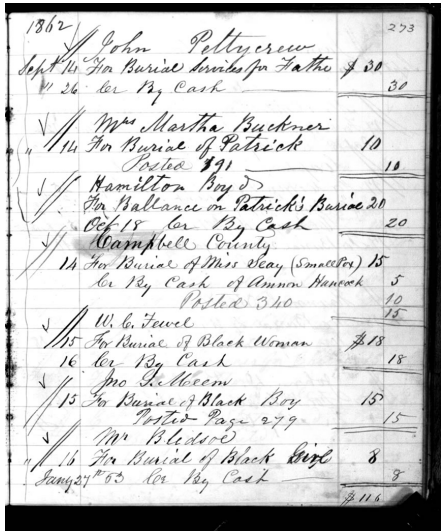 1862
273
John Pettycrew
Sept 14 For Burial Services for Fathe $ 30
" 26 Cr By Cash 30
Mrs Martha Buckner
" 14 For Burial of Patrick 10
Posted 191 10
Hamilton Boyd
For Ballance on Patrick's Burial 20
Oct 18 Cr By Cash 20
Campbell County
14 For Burial of Miss Seay (Small Pox) 15
Cr By Cash of Ammon Hancock 5
Posted 340 10
15
W. C. Fewel
15 For Burial of Black Woman $18
16 Cr By Cash 18
Jno G. Meem
15 For Burial of Black Boy 15
Posted Page 279 15
Mr Bledsoe
" 16 For Burial of Black Girl 8
Jany 27th 63 Cr By Cash 8
$116